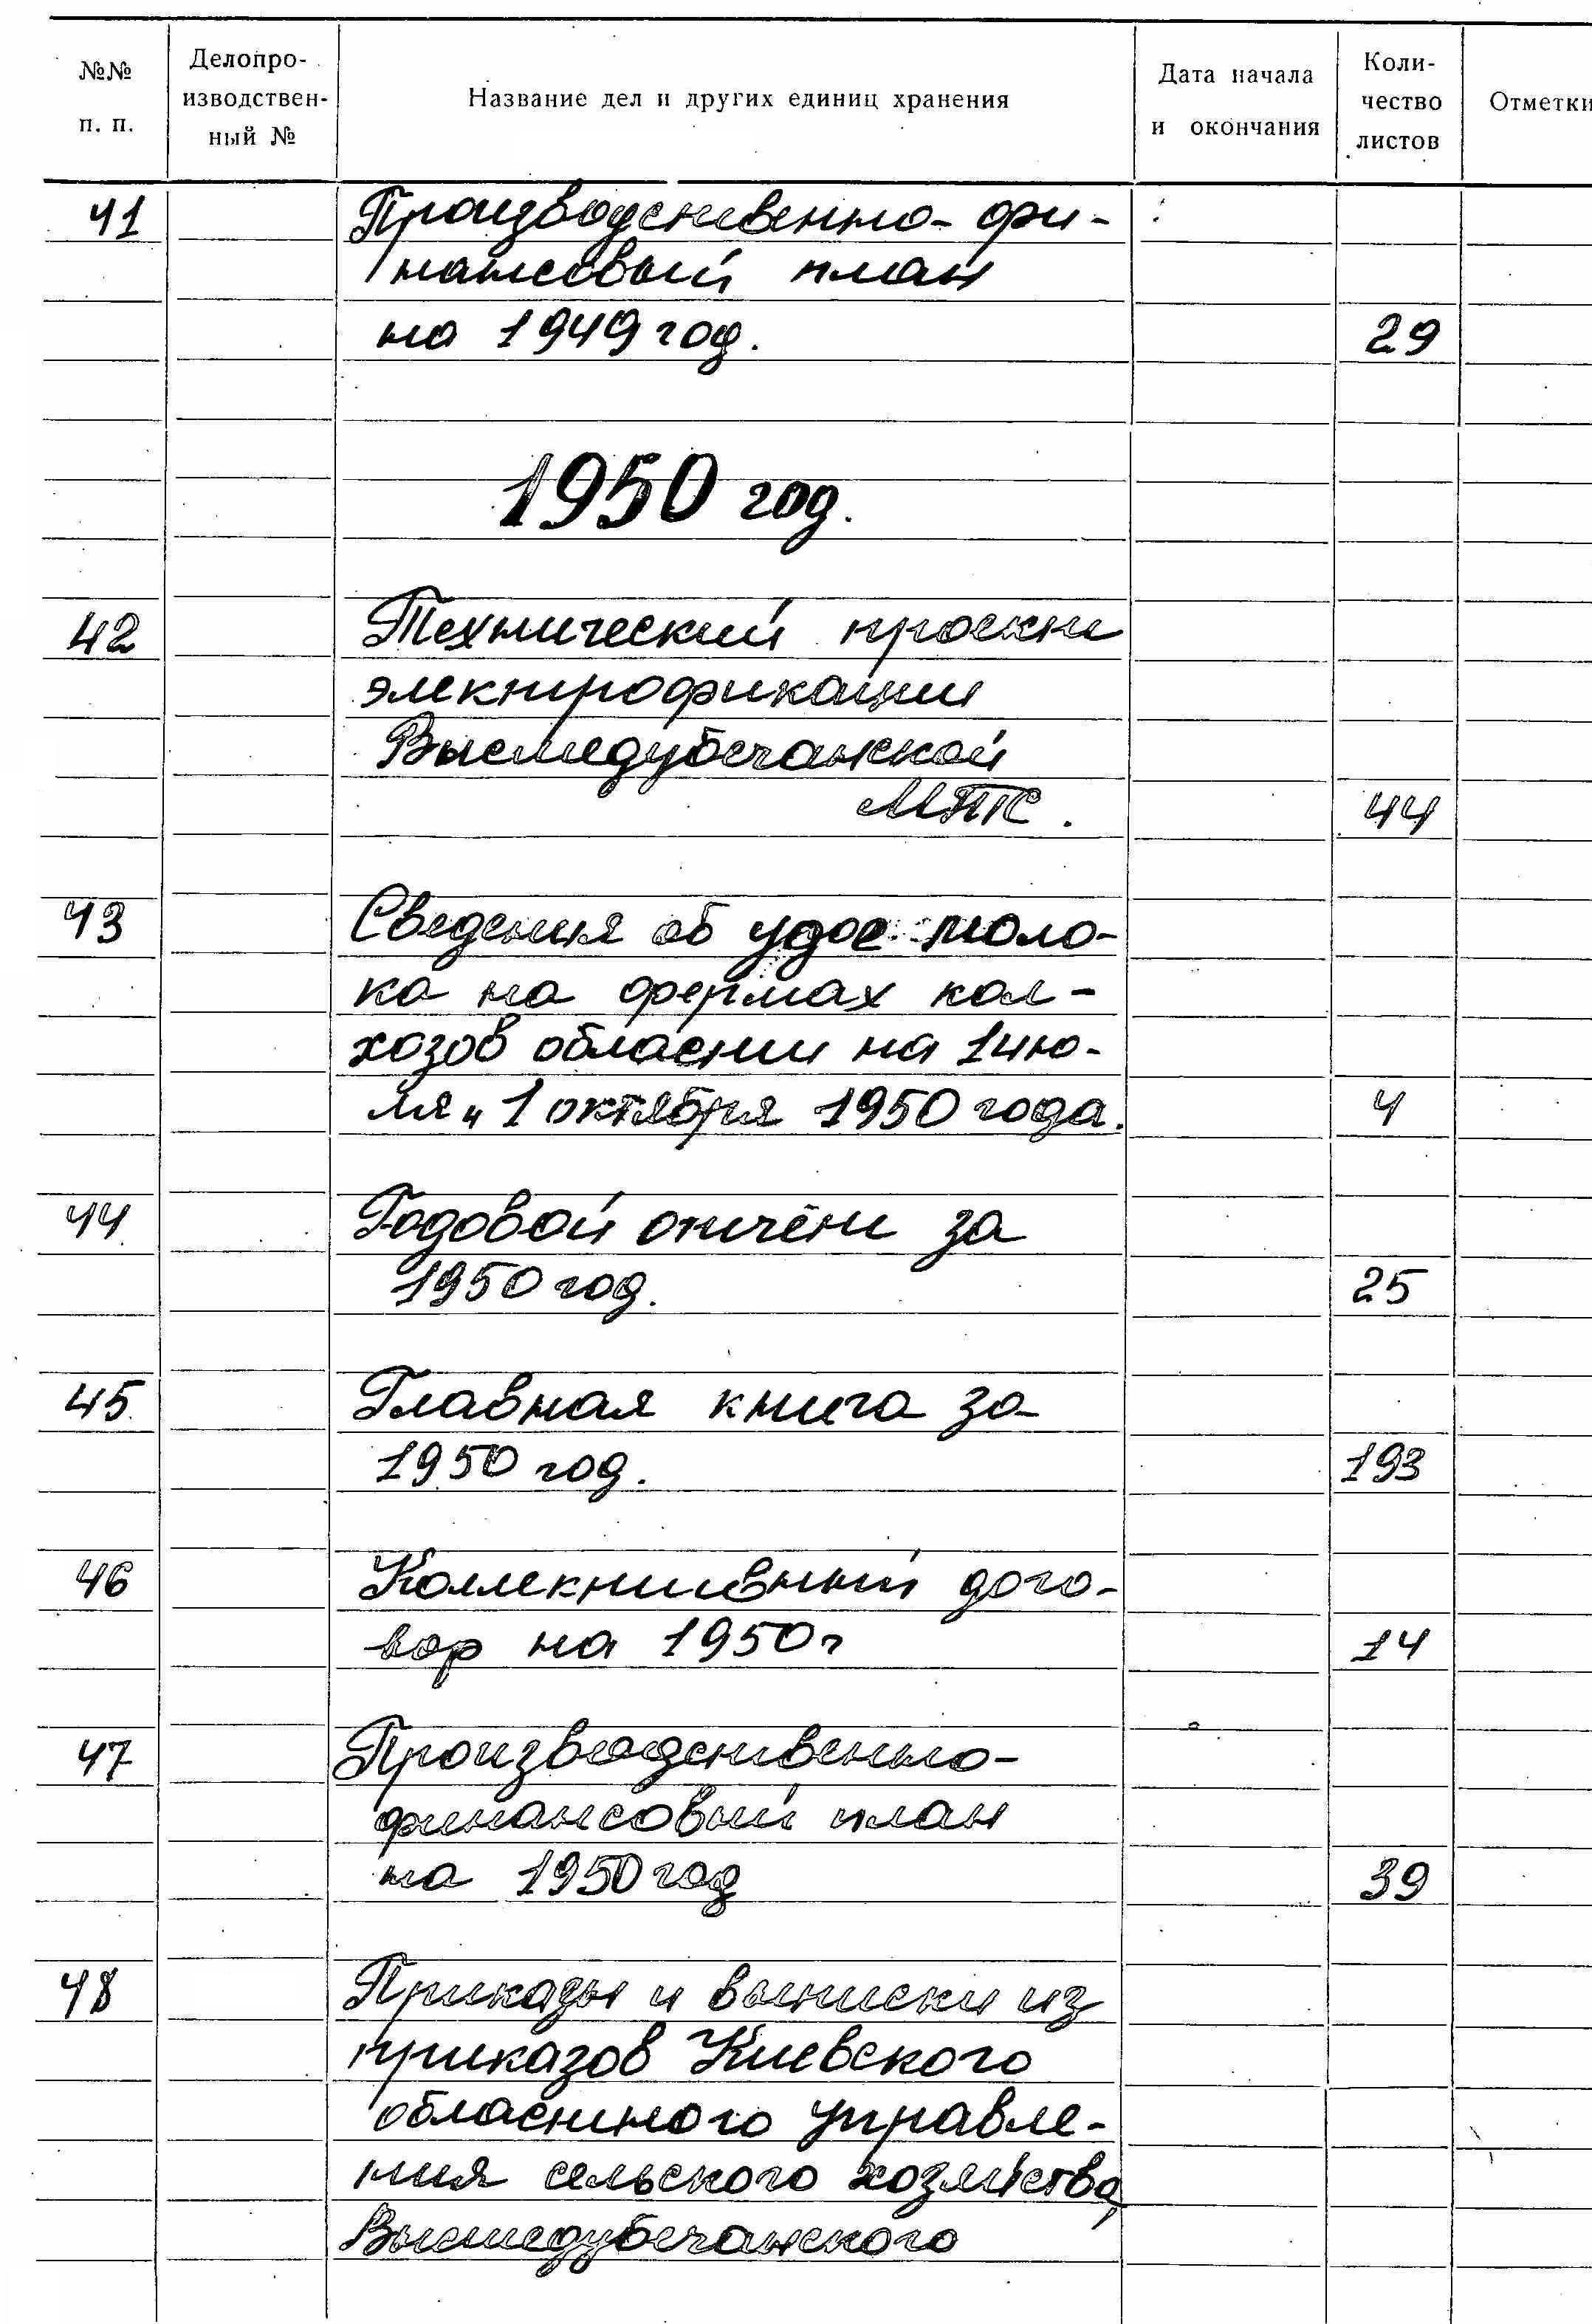 №№ п. п. Делопро-изводствен-ный № Название дел и других единиц хранения Дата начала и окончания Коли-чество листов Отметки
41 Производственно-фи-
нансовый план
на 1949 год. 29
1950 год.
42 Технический проект
электрофикации
Вышедубечанской
МТС. 44
43 Сведения об удое моло-
ка на фермах кол-
хозов области на 1 ию-
ля и 1 октября 1950 года. 4
44 Годовой отчёт за
1950 год. 25
45 Главная книга за
1950 год. 193
46 Коллективный дого-
вор на 1950 г 14
47 Производственно-
финансовый план
на 1950 год 39
48 Приказы и выписки из
приказов Киевского
областного управле-
ния сельского хозяйства,
Вышедубечанского